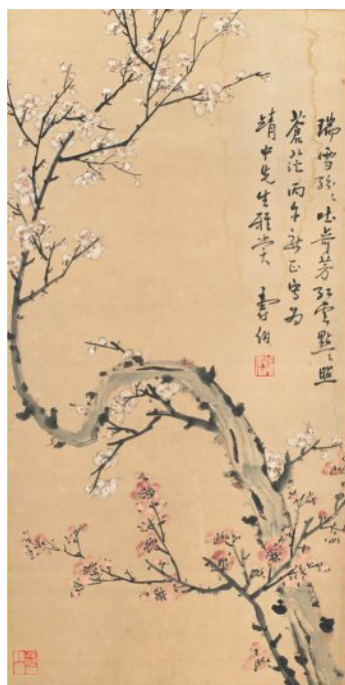 瑞雪紛々吐奇芳紅雲點々照
蒼茫丙午新正寫為
靖中先生雅賞 壽伯